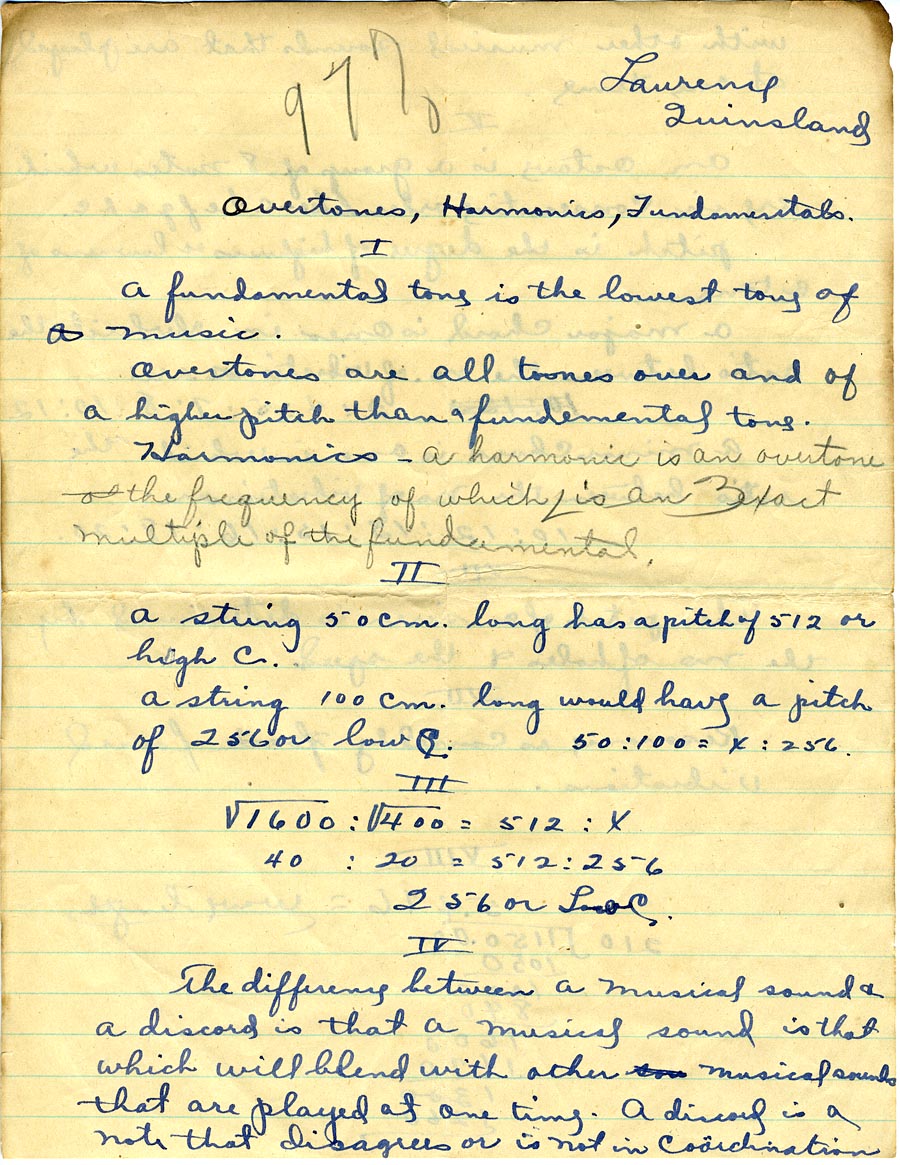 977
Laurence
Quinsland
Overtones, Harmonics, Fundamentals.
I
A fundamental tone is the lowest tone of
a music.
Overtones are all toones over and of
a higher pitch than a fundemental tone.
Harmonics - A harmonic is an overtone
of the frequency of which is an exact
multiple of the fundamental.
II
A string 50 cm. long has a pitch of 512 or
high C.
A string 100 cm. long would have a pitch
of 256 or low C. 50:100 = X:256.
III
√1600 : √400 = 512 : X
40 : 20 = 512 : 256
256 or Low C.
IV
The difference between a musical sound &
a discord is that a musical sound is that
which will blend with other sou musical sounds
that are played at one time. A discord is a
note that disagrees or is not in coördination